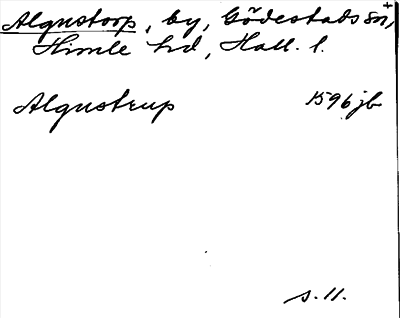 Algustorp, by, Gödestads sn, +
Himle hd, Hall. l.
Algustrup 1596 jb
s. 11.